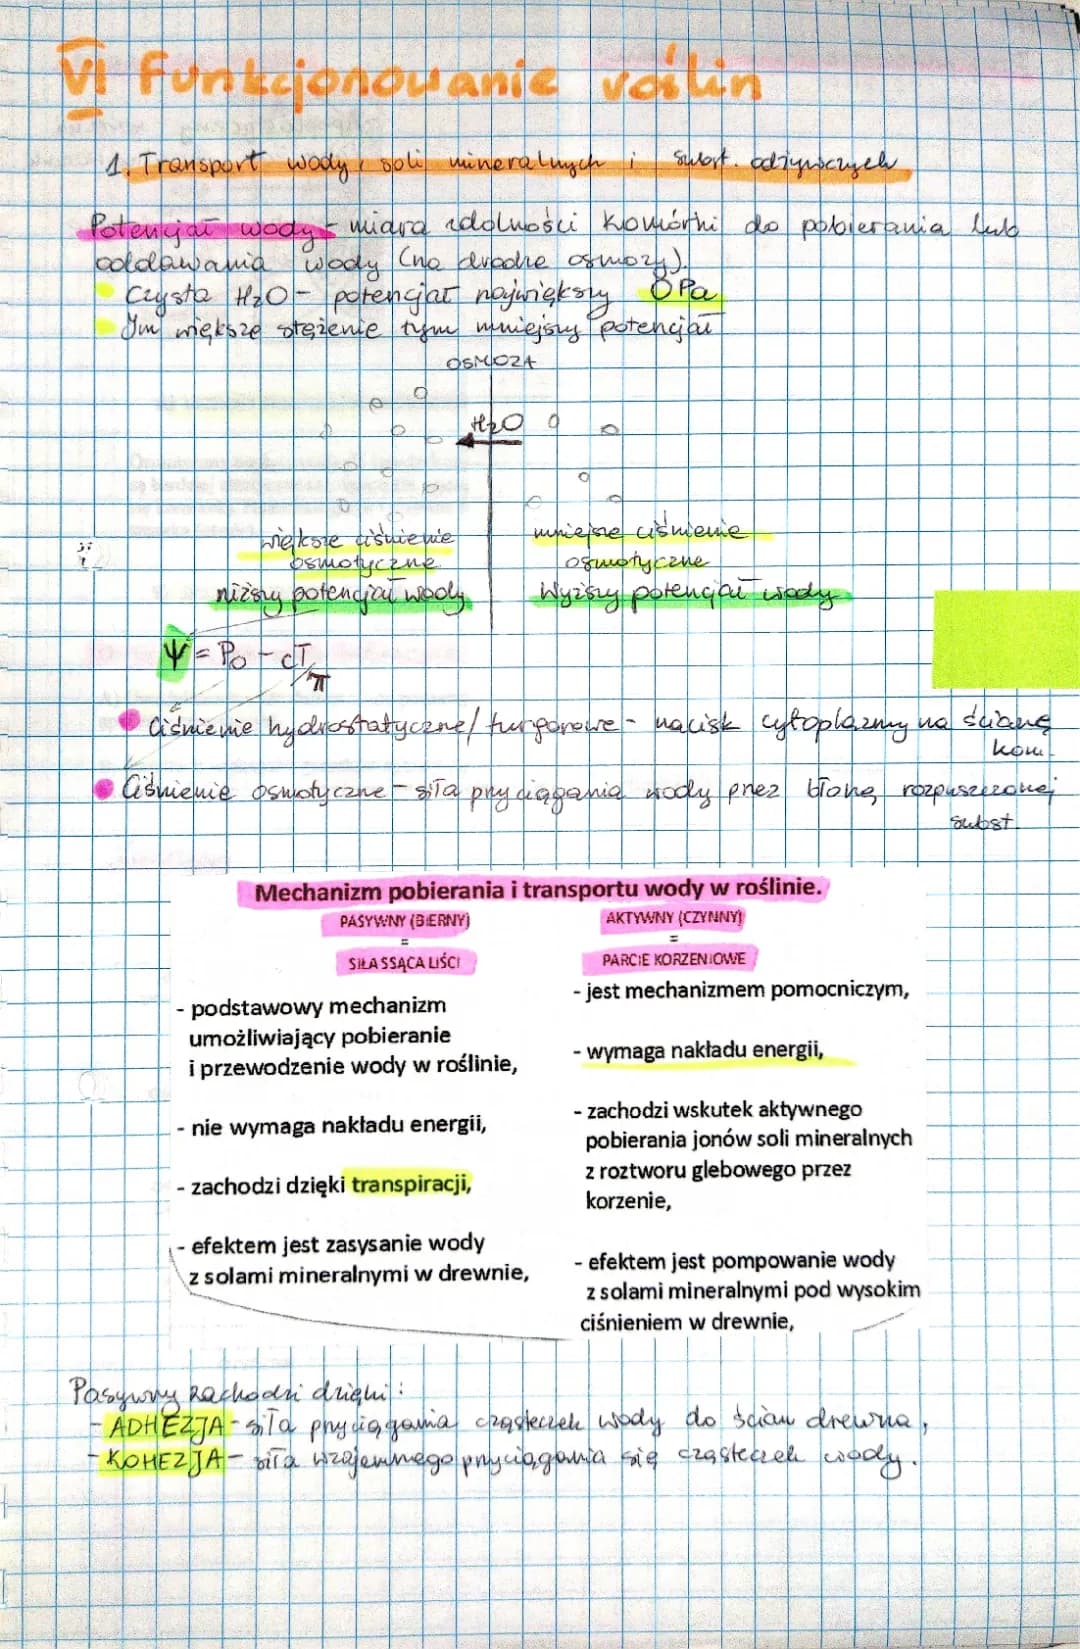 VI Funkcjonowanie roślin
1. Transport wody, soli mineralnych i subst. odżywczych
Potencjał wody - miara zdolności komórki do pobierania lub
oddawania wody (na drodze osmozy).
Czysta H₂O - potencjał największy 0 Pa
Im większe stężenie tym mniejszy potencjał
OSMOZA
H₂O
większe ciśnienie
osmotyczne
niższy potencjał wody
mniejsze ciśnienie
osmotyczne
Wyższy potencjał wody
Ψ = P₀ - π
Ciśnienie hydrostatyczne/turgorowe - nacisk cytoplazmy na ścianę
kom.
Ciśnienie osmotyczne - siła przyciągania wody przez błonę rozpuszczonej
subst.
Mechanizm pobierania i transportu wody w roślinie.
PASYWNY (BIERNY)
=
SIŁA SSĄCA LIŚCI
- podstawowy mechanizm
umożliwiający pobieranie
i przewodzenie wody w roślinie,
- nie wymaga nakładu energii,
- zachodzi dzięki transpiracji,
- efektem jest zasysanie wody
z solami mineralnymi w drewnie,
AKTYWNY (CZYNNY)
=
PARCIE KORZENIOWE
- jest mechanizmem pomocniczym,
- wymaga nakładu energii,
- zachodzi wskutek aktywnego
pobierania jonów soli mineralnych
z roztworu glebowego przez
korzenie,
- efektem jest pompowanie wody
z solami mineralnymi pod wysokim
ciśnieniem w drewnie,
Pasywny zachodzi dzięki:
- ADHEZJA - siła przyciągania cząsteczek wody do ścian drewna,
- KOHEZJA - siła wzajemnego przyciągania się cząsteczek wody.